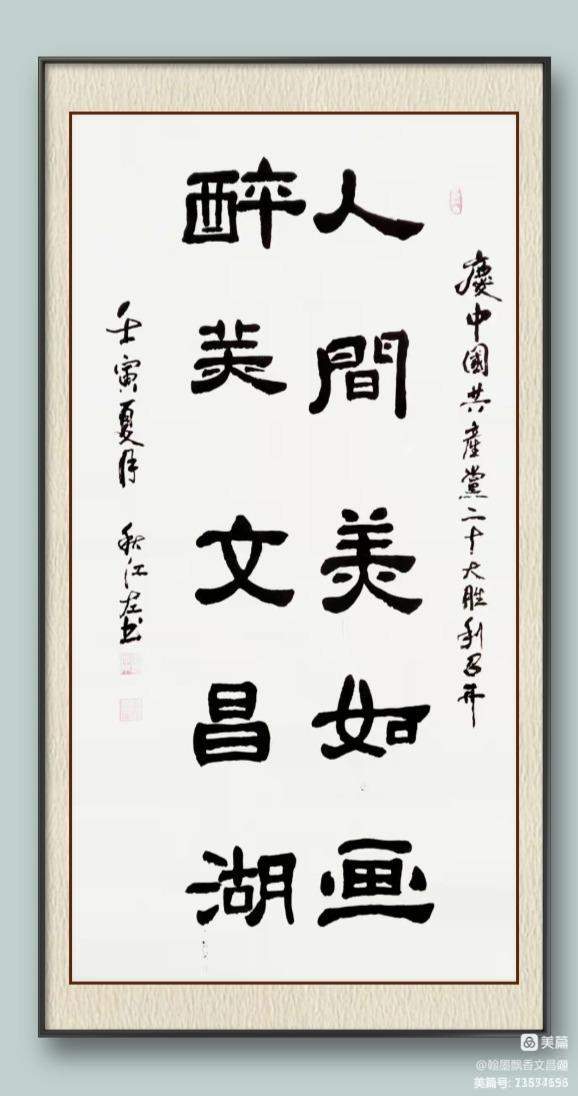 慶中國共產黨二十大胜利召开
人間美如画
醉美文昌湖
壬寅夏月 秋江左书
美篇
@翰墨飘香文昌湖
美篇号: 73534656